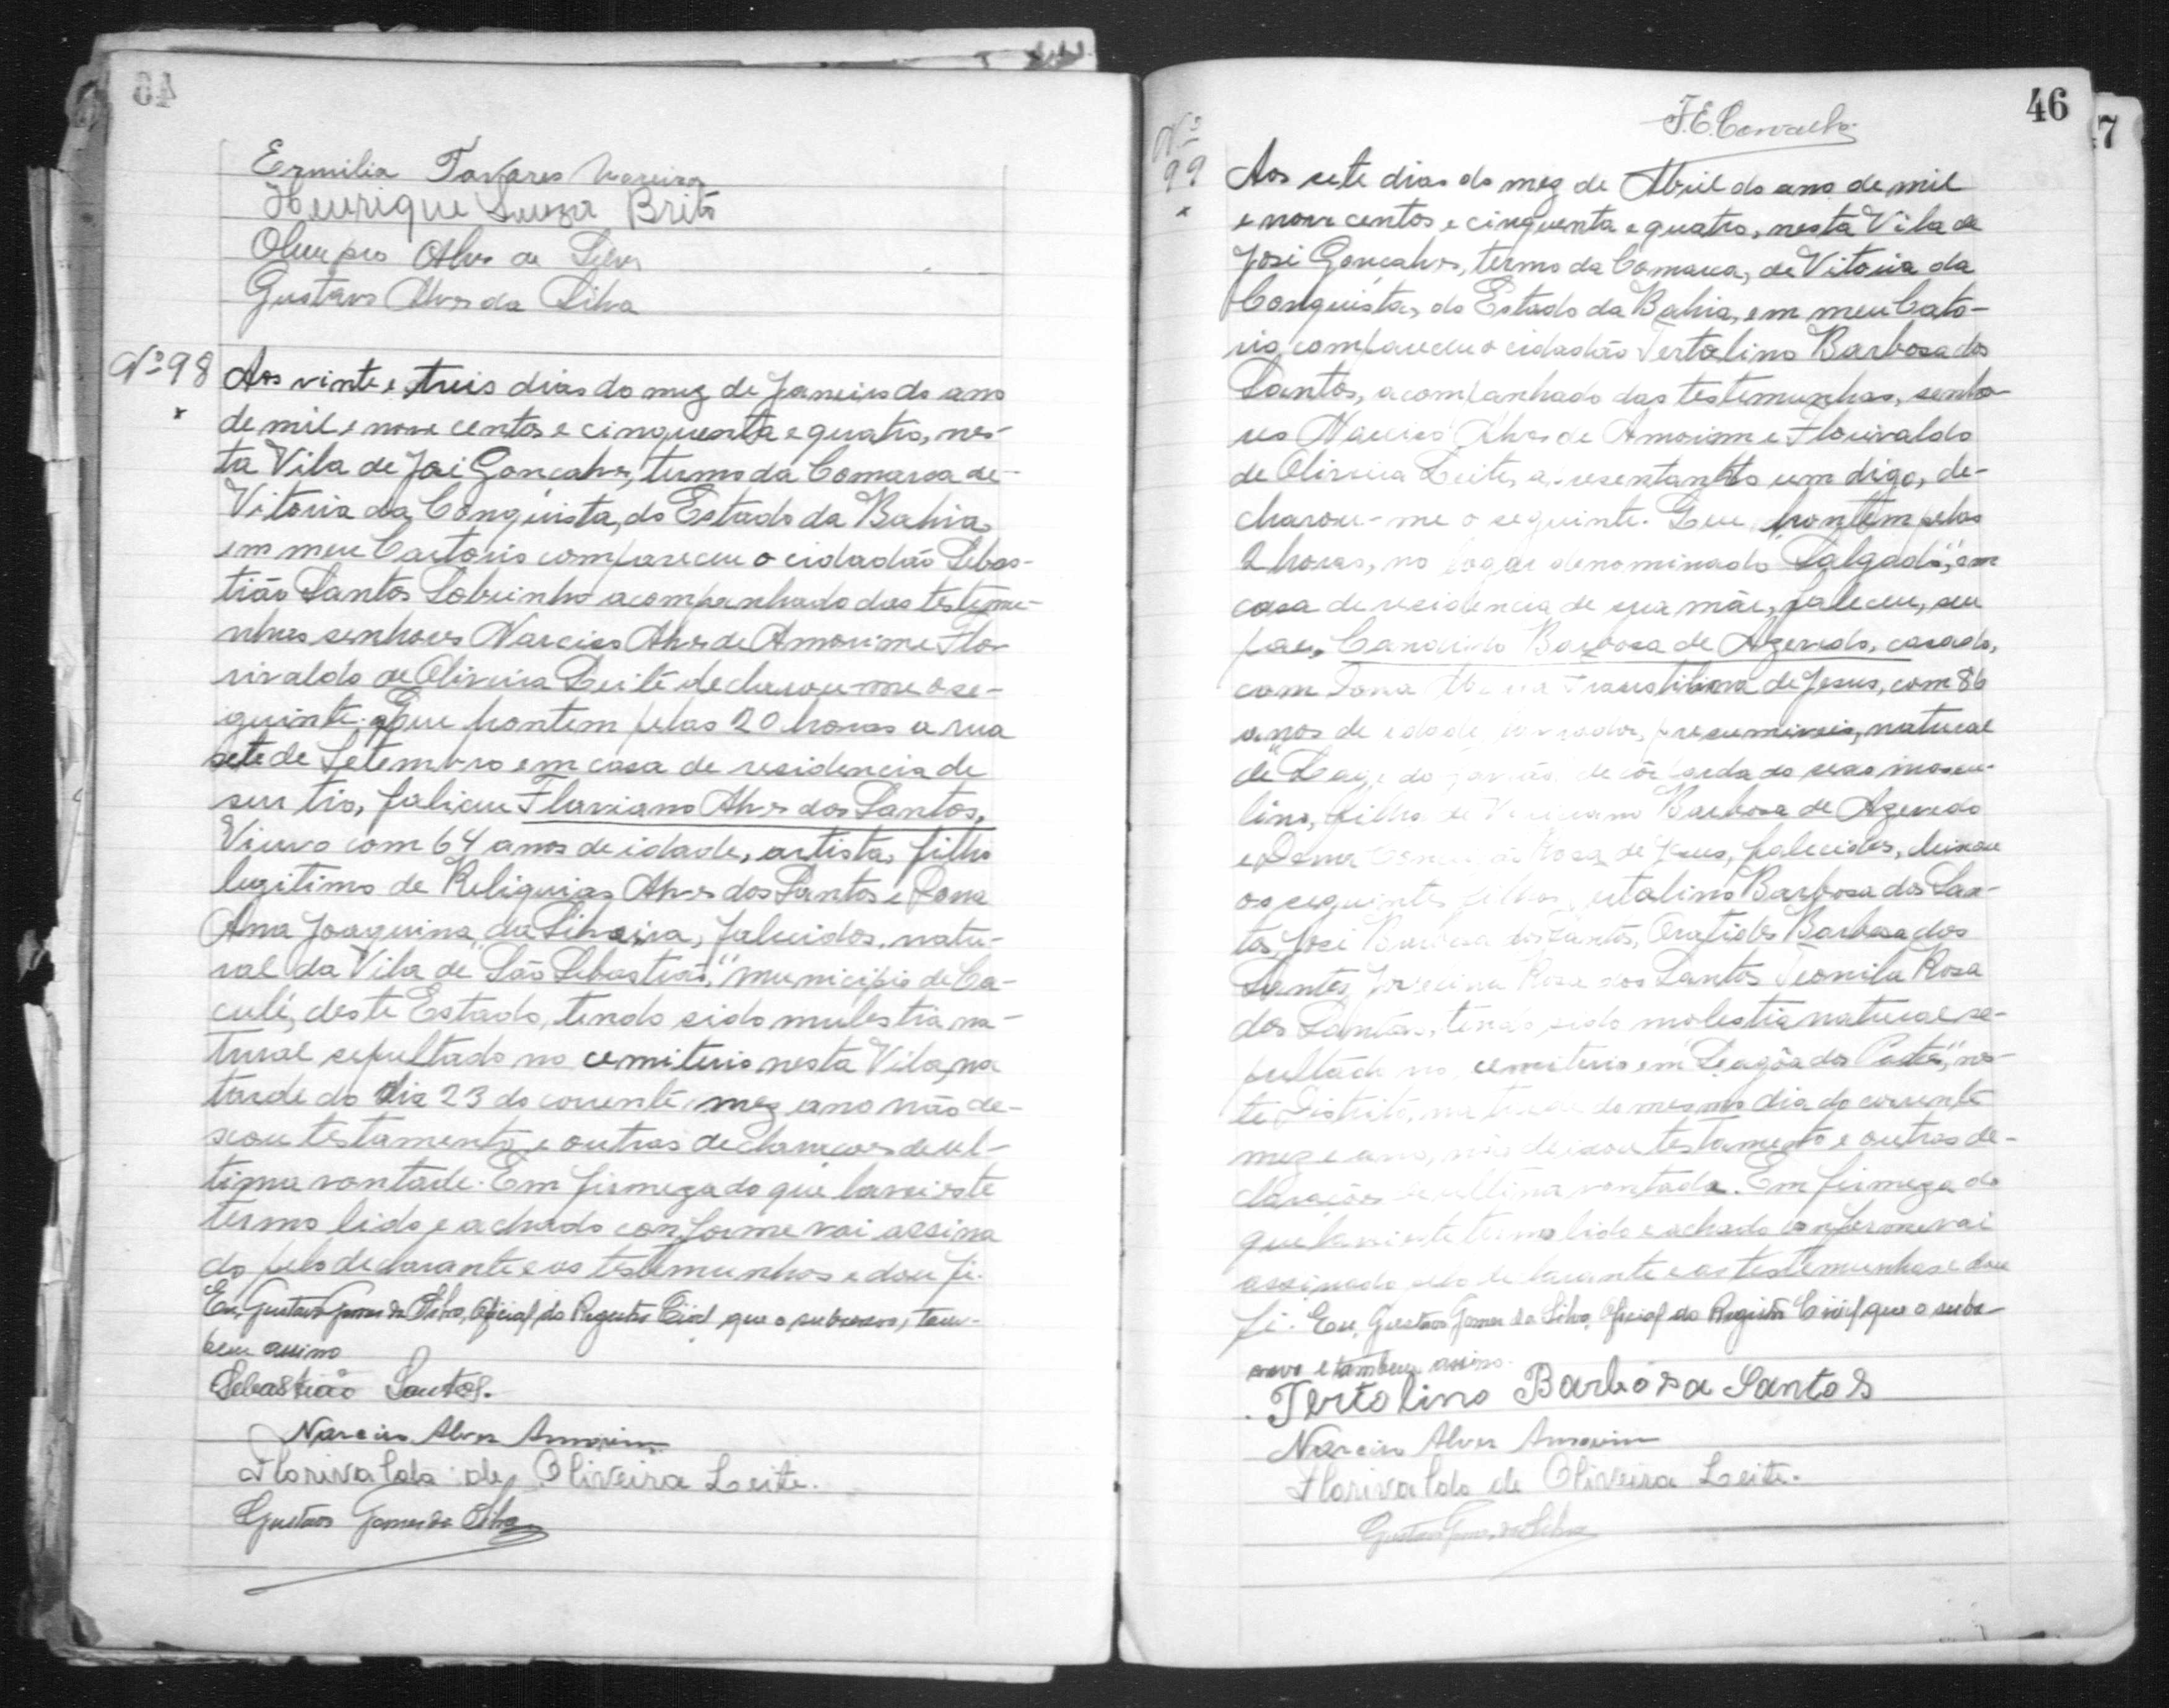 46
Ermilia Tavares Moreira
Henrique Souza Brito
Olimpio Alves da Silva
Gustavo Alves da Silva
Nº 98 Aos vinte e treis dias do mez de Janeiro do ano
de mil e nove centos e cinquenta e quatro, nes-
ta Vila de José Gonçalves, termo da Comarca de
Vitoria da Conquista, do Estado da Bahia,
em meu Cartorio compareceu o cidadão Sebas-
tião Santos Sobrinho acompanhado das testemu-
nhas senhores Narciso Alves de Amorim e Flo-
rivaldo de Oliveira Leite declarou-me o se-
guinte. Que hontem pelas 20 horas a rua
sete de Setembro em casa de residencia de
seu tio, faliceu Flaviano Alves dos Santos,
Viuvo com 64 anos de idade, artista, filho
legitimo de Religuias Alves dos Santos e Dona
Ana Joaquina da Silveira, falecidos, natu-
ral da Vila de "São Sebastião," municipio de Ca-
culé, deste Estado, tendo sido mulestia na-
tural sepultado no cemiterio nesta Vila, na
tarde do dia 23 do corrente mez ano não de-
xou testamento e outras declaracoes de ul-
tima vontade. Em firmeza do que lavrei este
termo lido e achado conforme vai assina
do pelo declarante e as testemunhas e dou fé.
Eu, Gustavo Gomes da Silva, Oficial do Registro Civil que o subscrevo, tam-
bem assino
Sebastião Santos.
Narciso Alves Amorim
Florivaldo de Oliveira Leite.
Gustavo Gomes da Silva
46
7
J.E. Carvalho
Nº 99
Aos sete dias do mez de Abril do ano de mil
e nove centos e cinquenta e quatro, nesta Vila de
José Gonçalves, termo da Comarca, de Vitoria da
Conquista, do Estado da Bahia, em meu Cato-
rio compareceu o cidadão Tertolino Barbosa dos
Santos, acompanhado das testemunhas, senho-
res Narciso Alves de Amorim e Florivaldo
de Oliveira Leite, apresentando um digo, de-
clarou-me o seguinte. Que, hontem pelas
2 horas, no logar denominado "Salgado," em
casa de residencia de sua mãe, faleceu, seu
pae, Candido Barbosa de Azevedo, casado,
com Dona Maria Faustilina de Jesus, com 86
anos de idade, lavrador, presumiveis, natural
de "Lage do de côr parda do sexo mascu-
lino, filho de Barbosa de Azevedo
e Dona Rosa de Jesus, falecidos, deixou
os seguintes filhos Tertolino Barbosa dos San-
tos, José Barbosa dos Santos, Oratides Barbosa dos
Santos, Jovelina Rosa dos Santos Teonila Rosa
dos Santos, tendo sido molestia natural se-
pultado no cemiterio em "Lagôa das Patos", nes-
te Distrito, na tarde do mesmo dia do corrente
mez e ano, não deixou testamento e outras de-
clarações de ultima vontade. Em firmeza do
que lavrei este termo lido e achado conforme vai
assinado pelo declarante e as testemunhas e dou
fé. Eu, Gustavo Gomes da Silva, Oficial do Registro Civil que o subs-
crevo e tambem assino.
Tertolino Barbosa Santos
Narciso Alves Amorim
Florivaldo de Oliveira Leite.
Gustavo Gomes da Silva